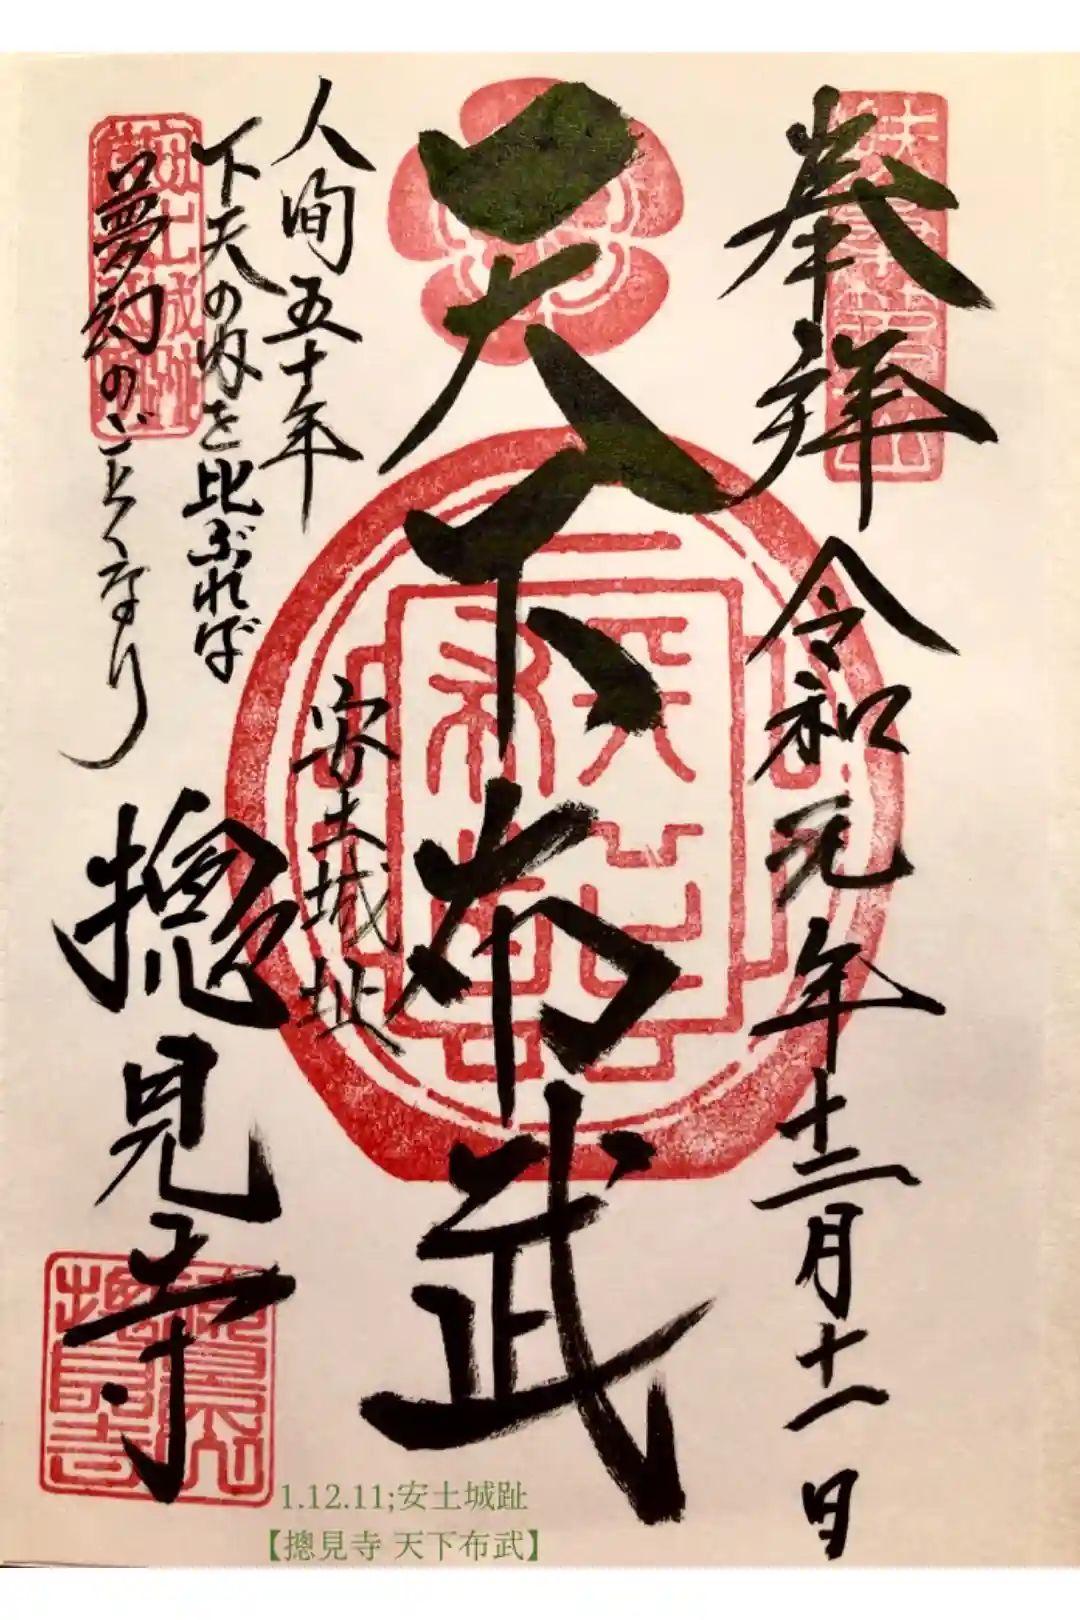 奉拝
令和元年十二月十一日
天下布武
安土城址
人間五十年
下天の内を比ぶれば
夢幻のごとくなり
摠見寺
1.12.11;安土城趾
【摠見寺 天下布武】